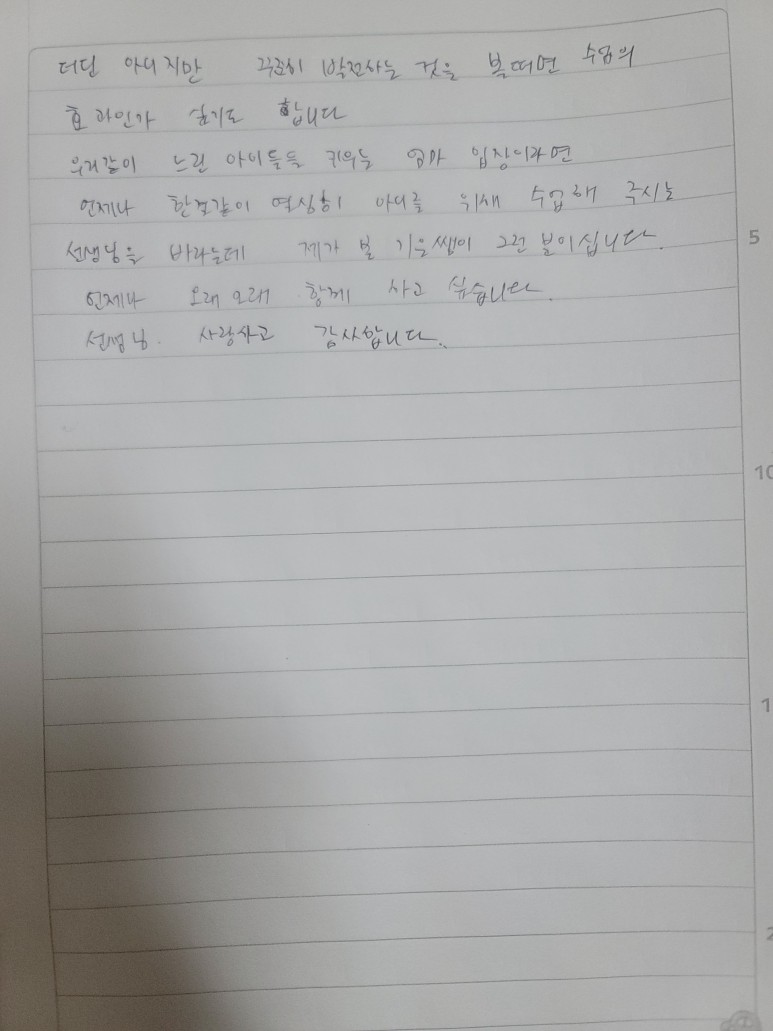 더딘 아니지만 꾸준히 발전하는 것을 볼때면 수업의
효과인가 싶기도 합니다
우리같이 느린 아이들을 키우는 엄마 입장이라면
언제나 한결같이 열심히 아이를 위해 수업해 주시는
선생님을 바라는데 제가 본 기운쌤이 그런 분이십니다.
언제나 오래오래 함께 하고 싶습니다.
선생님. 사랑하고 감사합니다.
5
10